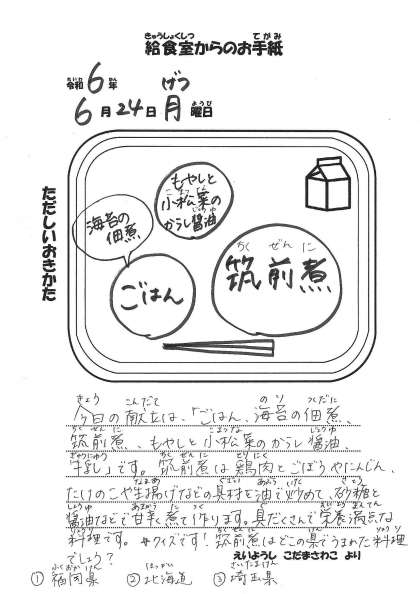 きゅうしょくしつ てがみ
給食室からのお手紙
れいわ ねん げつ
令和6年
がつ にち ようび
6月24日月曜日
ただしいおきかた
もやしと
小松菜の
からし醤油
海苔の
佃煮
ごはん
ちく ぜん に
筑前煮
きょう こんだて のり つくだに
今日の献立は、「ごはん、海苔の佃煮、
ちくぜんに こまつな しょうゆ
筑前煮、もやしと小松菜のからし醤油、
ぎゅうにゅう ちくぜんに とりにく
牛乳」です。筑前煮は鶏肉とごぼうやにんじん、
なまあ ぐざい あぶら いた さとう
たけのこや生揚げなどの具材を油で炒めて、砂糖と
しょうゆ あまから に つく ぐ えいようまんてん
醤油などで甘辛く煮て作ります。具だくさんで栄養満点な
りょうり ちくぜんに けん りょうり
料理です。#クイズです!筑前煮はどこの県でうまれた料理
でしょう?
えいようし こだまさわこ より
ふくおかけん ほっかいどう さいたまけん
①福岡県 ②北海道 ③埼玉県